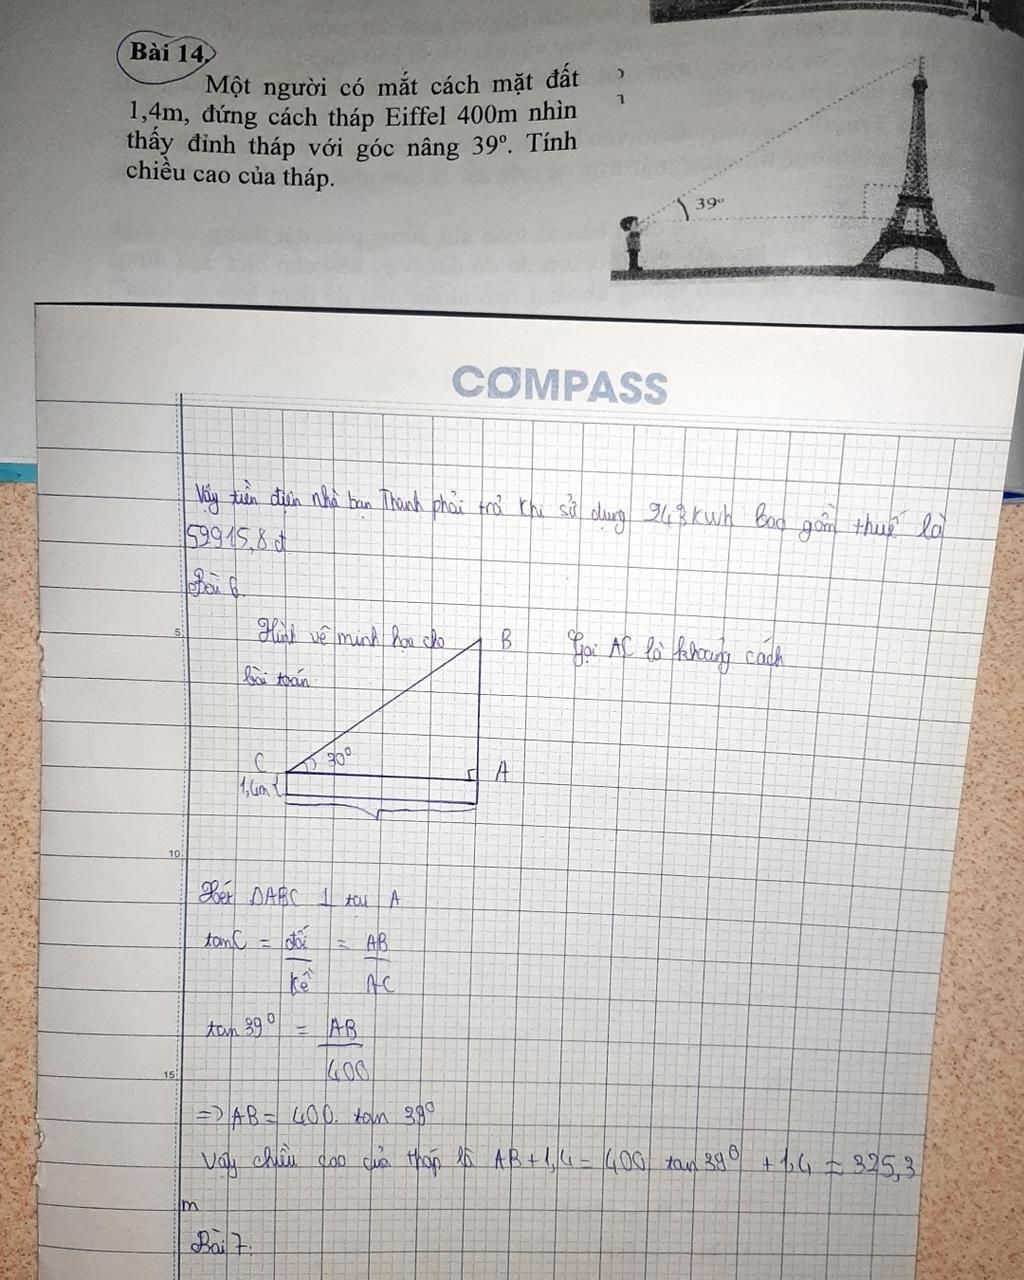 Bài 14.
Một người có mắt cách mặt đất
1,4m, đứng cách tháp Eiffel 400m nhìn
thấy đỉnh tháp với góc nâng 39º. Tính
chiều cao của tháp.
39º
COMPASS
Vậy tiền điện nhà bạn Thanh phải trả khi sử dụng 243 kWh bao gồm thuế là
59915,8 đ
Bài 6
5
Hình vẽ minh họa cho
bài toán
B
Gọi AC là khoảng cách
C
30º
A
1,4m
10
Xét ΔABC ⊥ tại A
tanC = đối/kề = AB/AC
tan 39º = AB/400
15
=> AB = 400. tan 39º
Vậy chiều cao của tháp là AB + 1,4 = 400 tan 39º + 1,4 = 325,3
m
Bài 7: